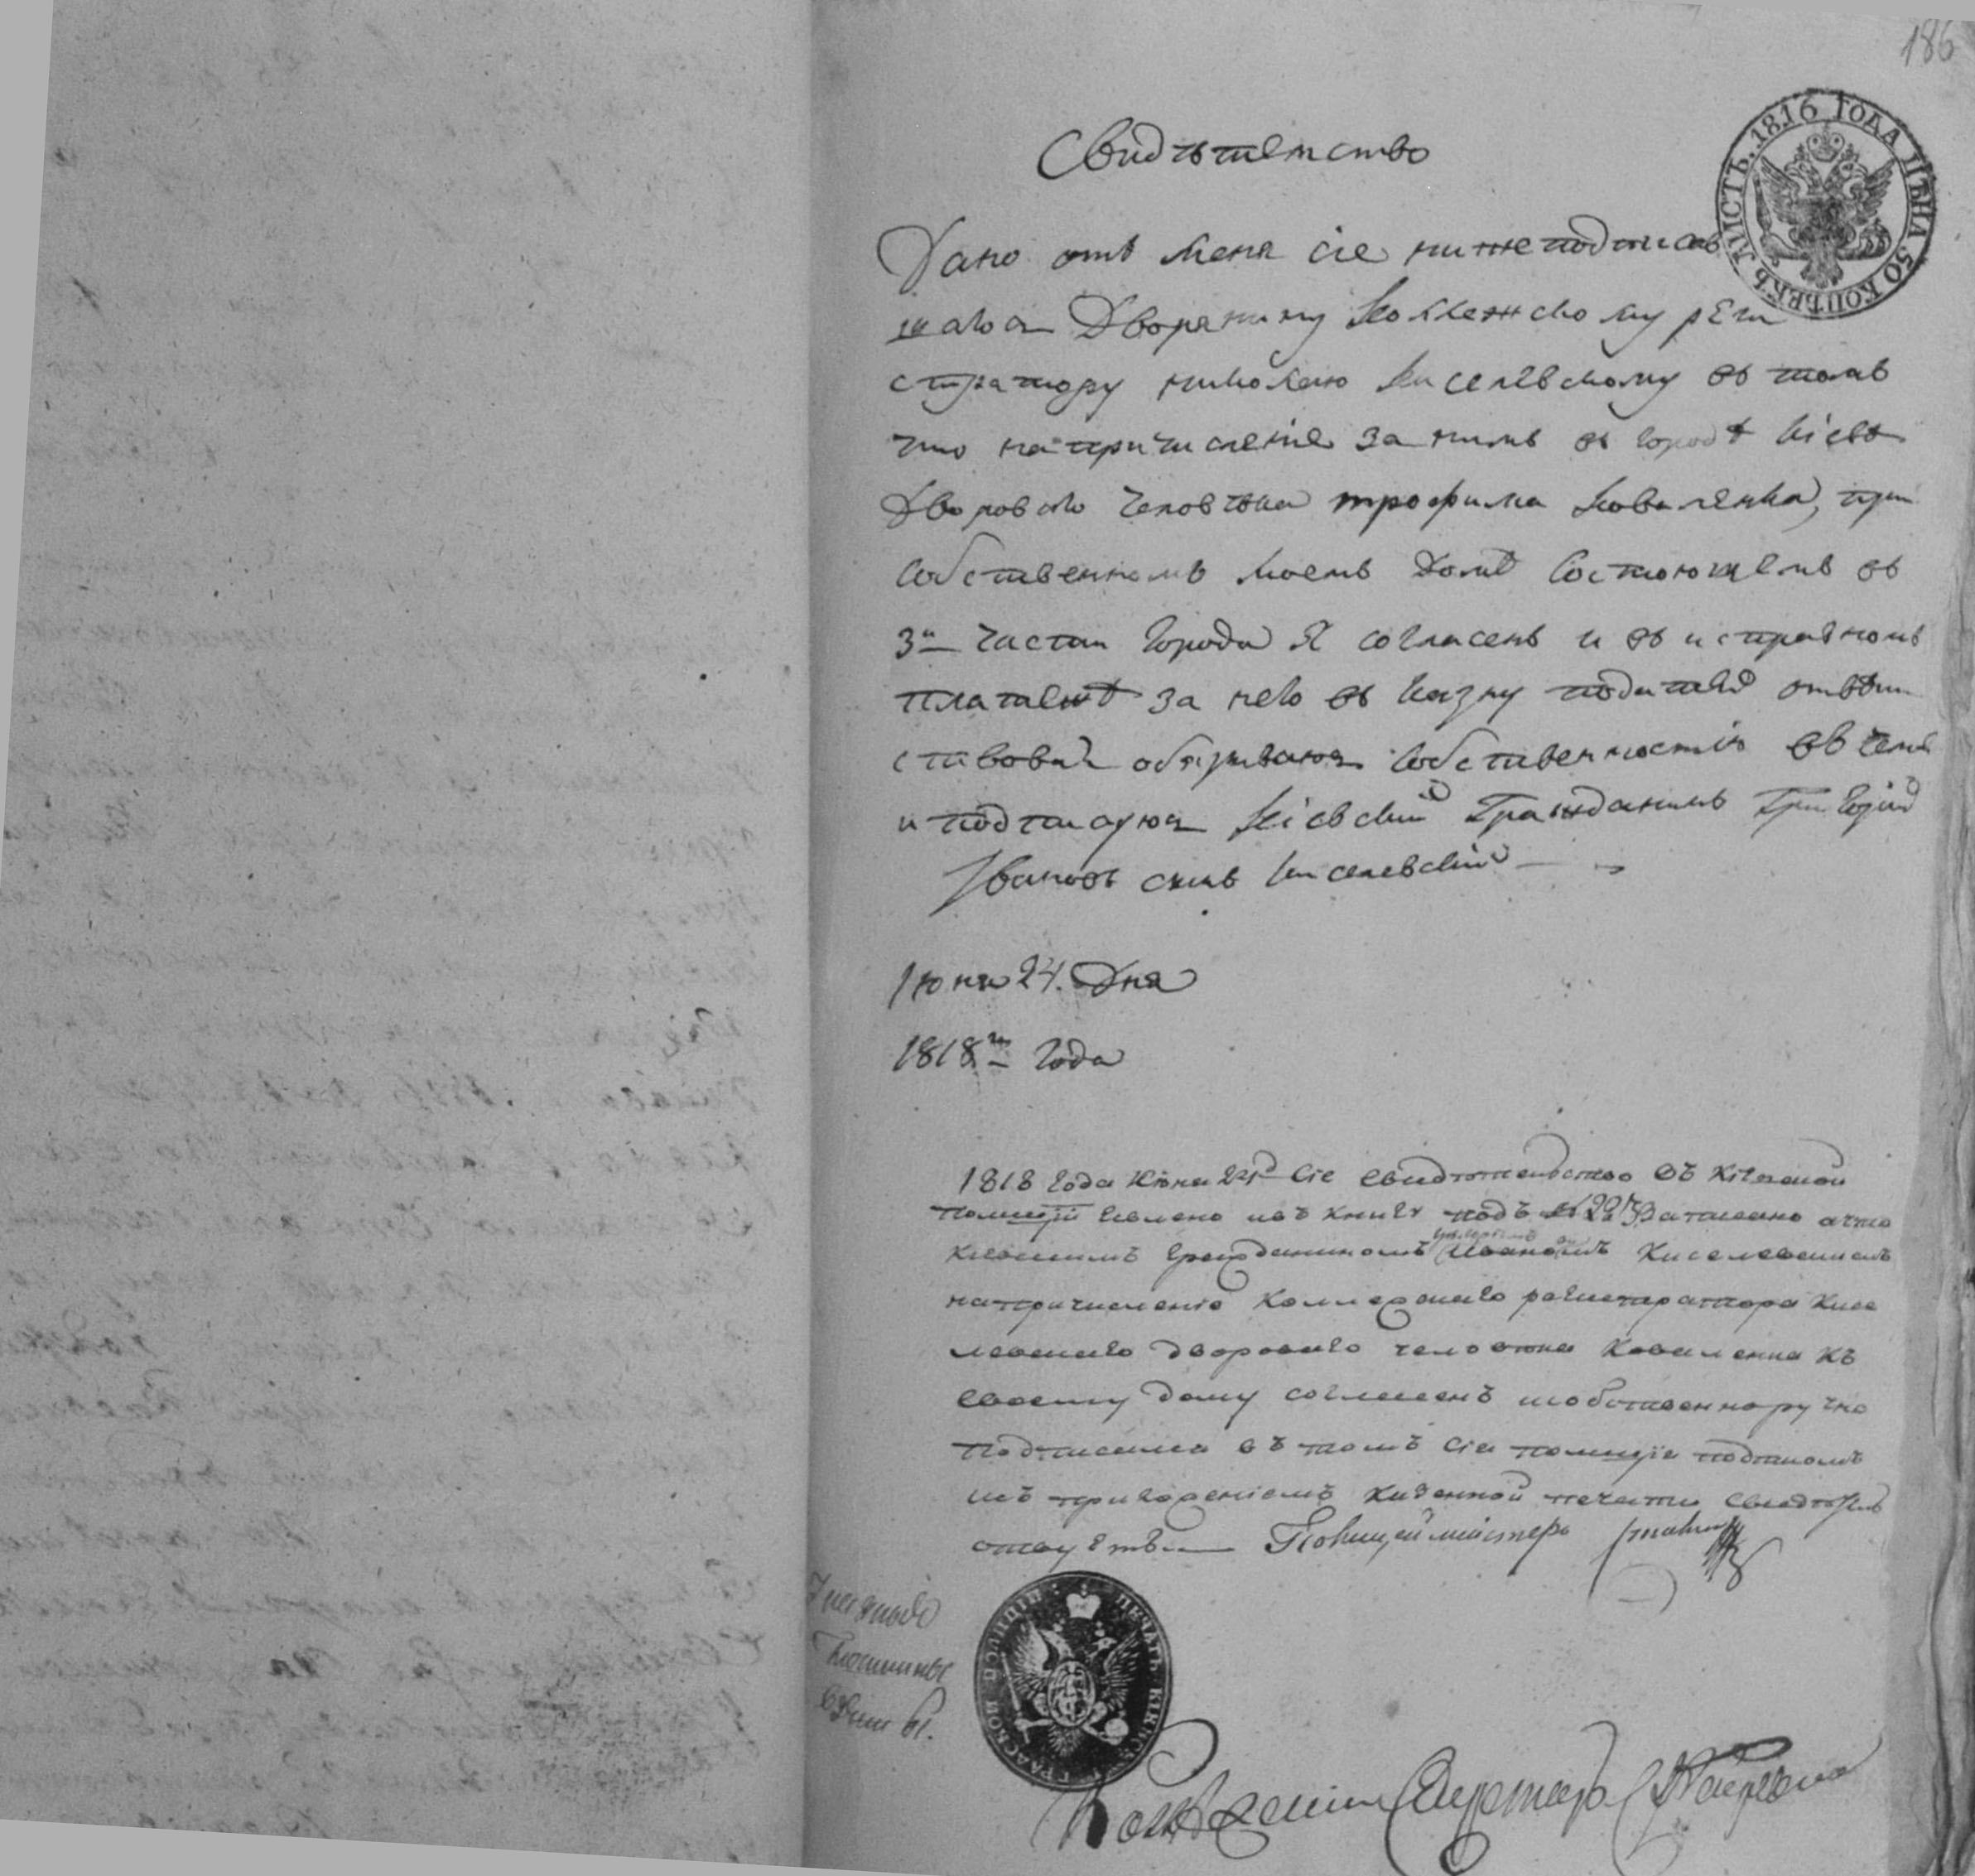 186
ЛИСТЪ. 1816 ГОДА ЦѢНА 50 КОПѢЕКЪ
Свидѣтелство
Дано отъ меня сіе нижеподписав
шагося Дворянину Коллежскому реги
стратору николаю киселевскому въ томъ
что на причисленіе за нимъ въ городѣ кіевѣ
Дворового человѣка трофима коваленка, при
собственномъ моемъ домѣ состоющемъ въ
3й части города Я согласенъ и въ исправномъ
платежѣ за него въ казну податей отвѣт
ствовать обязываюся собственностію въ чемъ
и подписуюся кіевскій Гражданинъ Григорій
Ивановъ сынъ киселевскій
Іюня 24. Дня
1818го года
1818 года Июня 24д сіе свидѣтельство въ кіевской
полиціи явлено и въ книгѣ подъ № записано а что
кіевскимъ гражданиномъ Киселевскимъ
на причисленіе коллежскаго регистратора Кисе
левскаго двороваго человѣка Коваленка къ
своему дому согласенъ и собственноручно
подписано въ томъ сія полиція подписомъ
и съ приложеніемъ казенной печати свидѣтель
ствуетъ Полицеймейстеръ
ПЕЧАТЬ КІЕВСК. ГРАДСКОЙ ПОЛИЦІИ
Секретарь